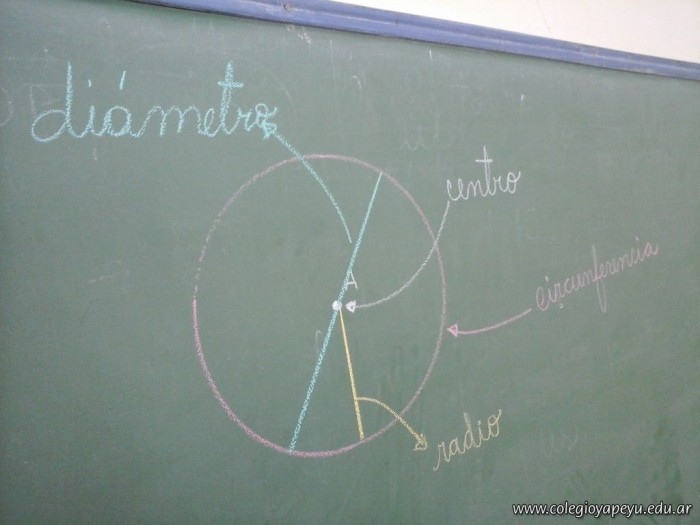 diámetro
centro
A
circunferencia
radio
www.colegioyapeyu.edu.ar